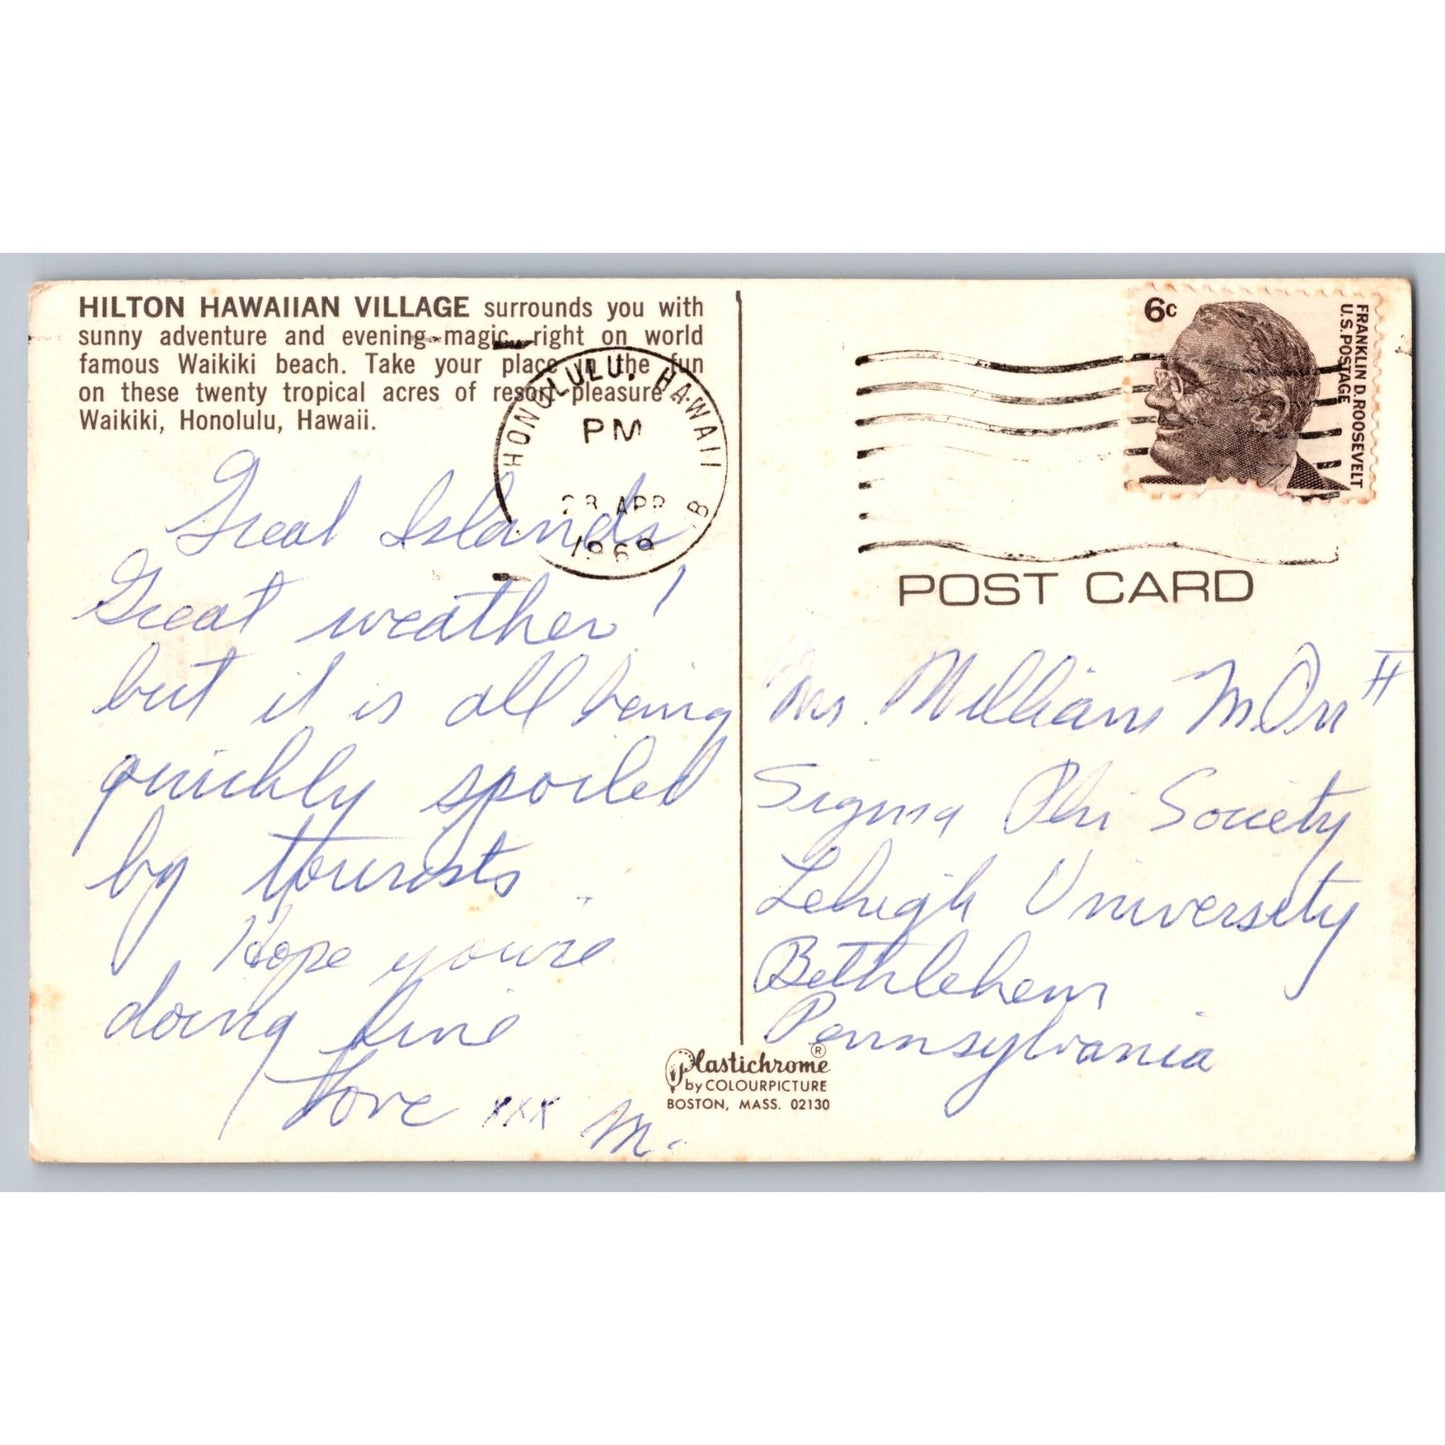 HILTON HAWAIIAN VILLAGE surrounds you with
sunny adventure and evening magic right on world
famous Waikiki beach. Take your place in the fun
on these twenty tropical acres of resort pleasure.
Waikiki, Honolulu, Hawaii.
HONOLULU, HAWAII
PM
APR
196
B
Great Islands
Great weather!
but it is all being
quickly spoiled
by tourists..
Hope you're
doing fine
Love xxx M.
6c
FRANKLIN D. ROOSEVELT
U.S. POSTAGE
POST CARD
William M Orr II
Sigma Phi Society
Lehigh University
Bethlehem
Pennsylvania
Plastichrome ®
by COLOURPICTURE
BOSTON, MASS. 02130